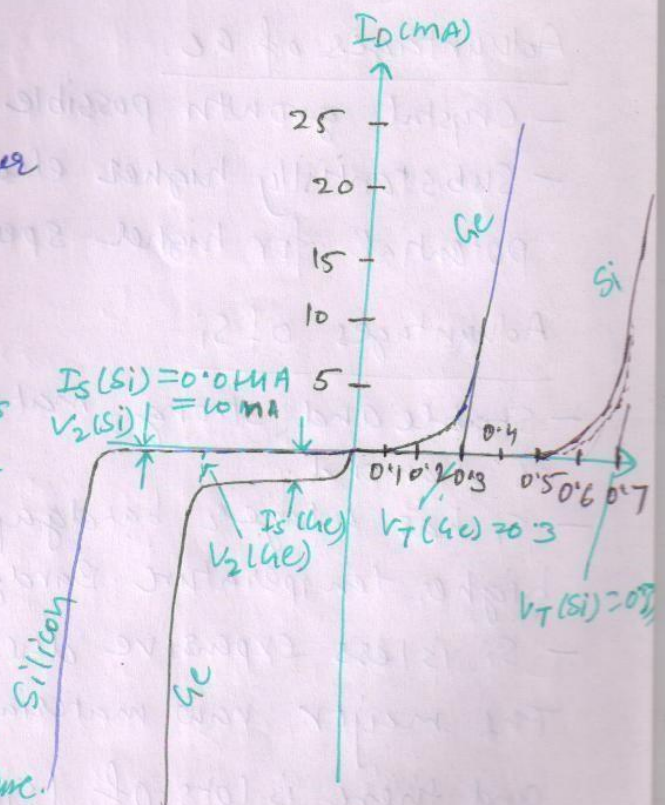 ID(mA)
25
20
15
10
5
er
Ge
Si
Is(Si)=0.01μA
=10 nA
Vz(Si)
0.1 0.2 0.3
0.4
0.5 0.6 0.7
Is(Ge)
Vz(Ge)
VT(Ge)=0.3
VT(Si)=0.
Silicon
Ge